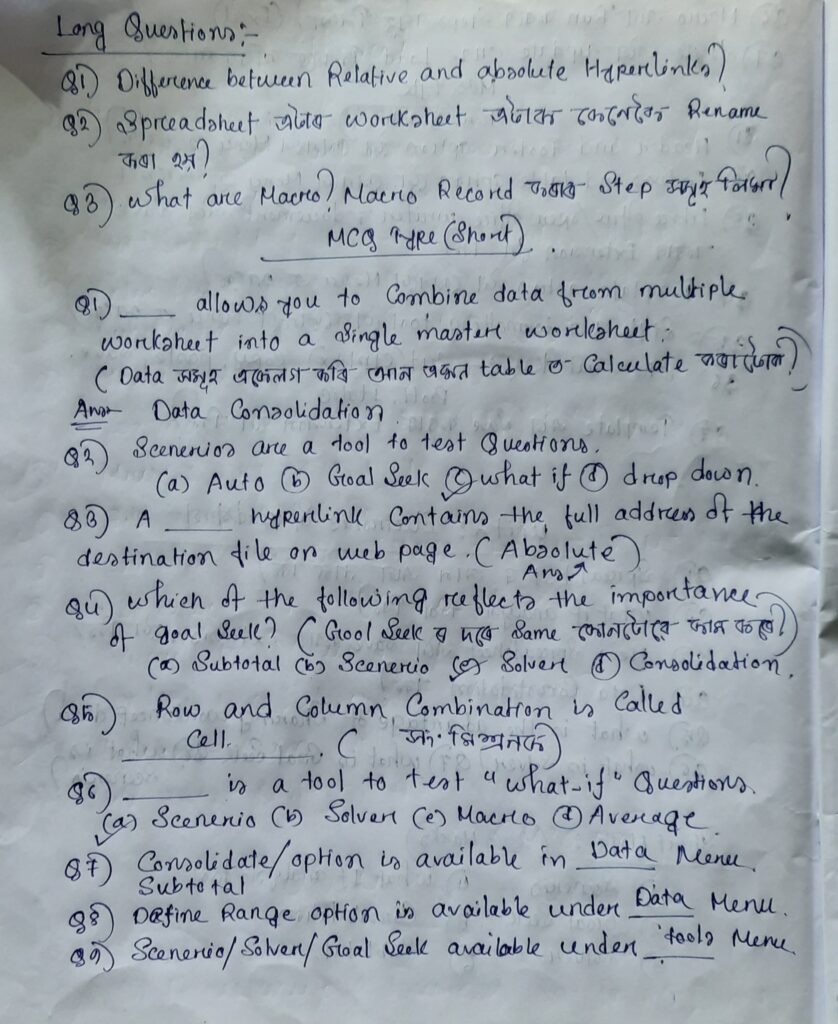 Long Questions:-
Q1) Difference between Relative and absolute Hyperlinks?
Q2) Spreadsheet এটাৰ worksheet এটাক কেনেকৈ Rename
কৰা হয়?
Q3) What are Macro? Macro Record কৰাৰ Step সমূহ লিখা?
MCQ type (Short)
Q1) ___ allows you to Combine data from multiple
worksheet into a single master worksheet.
( Data সমূহ একেলগ কৰি আন এজন table ত Calculate কৰাটোক?)
Ans- Data Consolidation
Q2) Scenerios are a tool to test Questions.
(a) Auto (b) Goal Seek (c) what if (d) drop down.
Q3) A ___ hyperlink Contains the full address of the
destination file on web page. (Absolute)
Ans
Q4) which of the following reflects the importance
of goal seek? ( Gool Seek ৰ দৰে Same কোনটোৱে কাম কৰে?)
(a) Subtotal (b) Scenerio (c) Solver (d) Consolidation.
Q5) Row and Column Combination is Called
Cell. ( সং-মিশ্ৰনক)
Q6) ___ is a tool to test "what-if" Questions.
(a) Scenerio (b) Solver (c) Macro (d) Average
Q7) Consolidate/option is available in Data Menu.
Subtotal
Q8) Define Range option is available under Data Menu.
Q9) Scenerio/Solver/Goal Seek available under tools Menu.